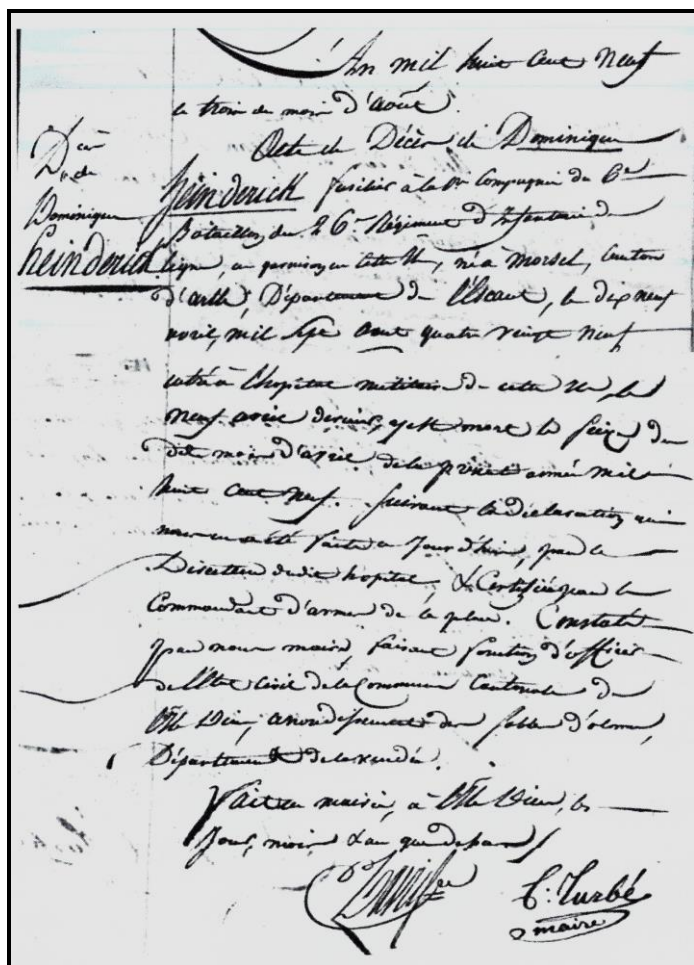 An mil huit Cent Neuf
le trois du mois d'août.
Acte de Décès de Dominique
Décès
de
Dominique
heinderick
heinderick fusilier à la 1re Compagnie du 6e
Bataillon du 26e Régiment d'Infanterie de
ligne, en garnison en cette île, né à Morsel, Canton
d'arth, Département de l'Escaut, le dix neuf
avril, mil sept Cent quatre vingt neuf
entré à l'hopital militaire de cette île, le
neuf avril dernier, y est mort le seize du
dit mois d'avril de la présente année mil
huit cent neuf. Suivant la déclaration qui
nous en a été faite ce Jourd'hui, par le
Directeur dudit hopital, & Certifiée par le
Commandant d'armes de la place. Constaté
par nous maire, faisant fonction d'officier
de l'Etat Civil de la Commune Cantonale de
l'Ile Dieu, arrondissement des sables d'olonne,
Département de la vendée.
Fait en mairie, à l'Ile Dieu, les
Jour, mois & an que dessus
C: Turbé
maire